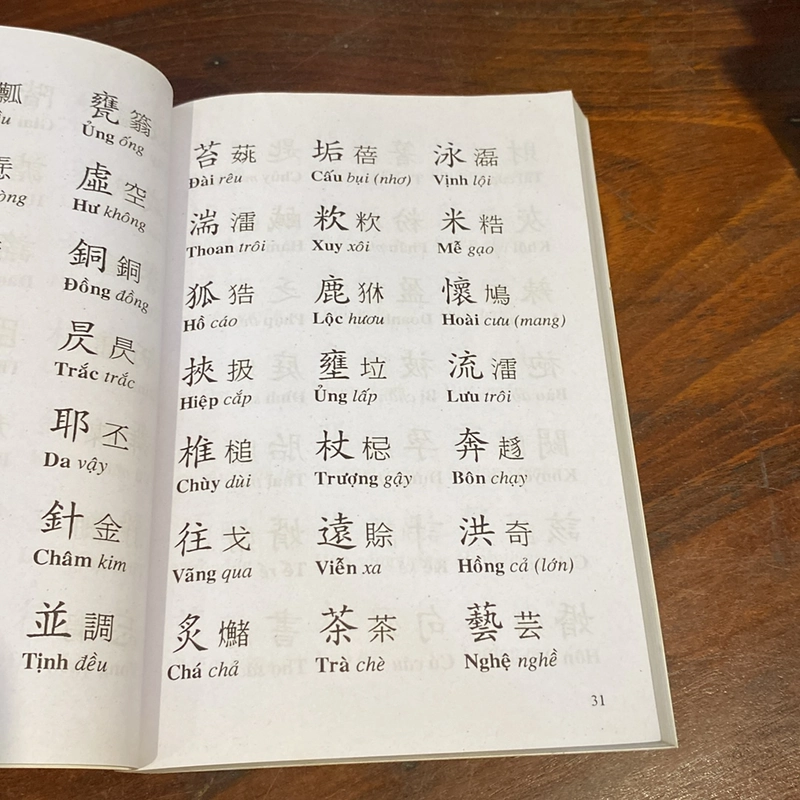 瓢 甕 蓊
Ủng ống
虛 空
òng Hư không
銅 銅
Đồng đồng
昃 昃
Trắc trắc
耶 丕
Da vậy
針 金
Châm kim
並 調
Tịnh đều
苔 垢 蓓 泳 磊
Đài rêu Cấu bụi (nhơ) Vịnh lội
湍 㵢 炊 米 粓
Thoan trôi Xuy xôi Mễ gạo
狐 狤 鹿 㹯 懷 鳩
Hồ cáo Lộc hươu Hoài cưu (mang)
挾 扱 壅 垃 流 㵢
Hiệp cắp Ủng lấp Lưu trôi
椎 槌 杖 奔 趍
Chùy dùi Trượng gậy Bôn chạy
往 戈 遠 賒 洪 奇
Vãng qua Viễn xa Hồng cả (lớn)
炙 茶 茶 藝 芸
Chá chả Trà chè Nghệ nghề
31